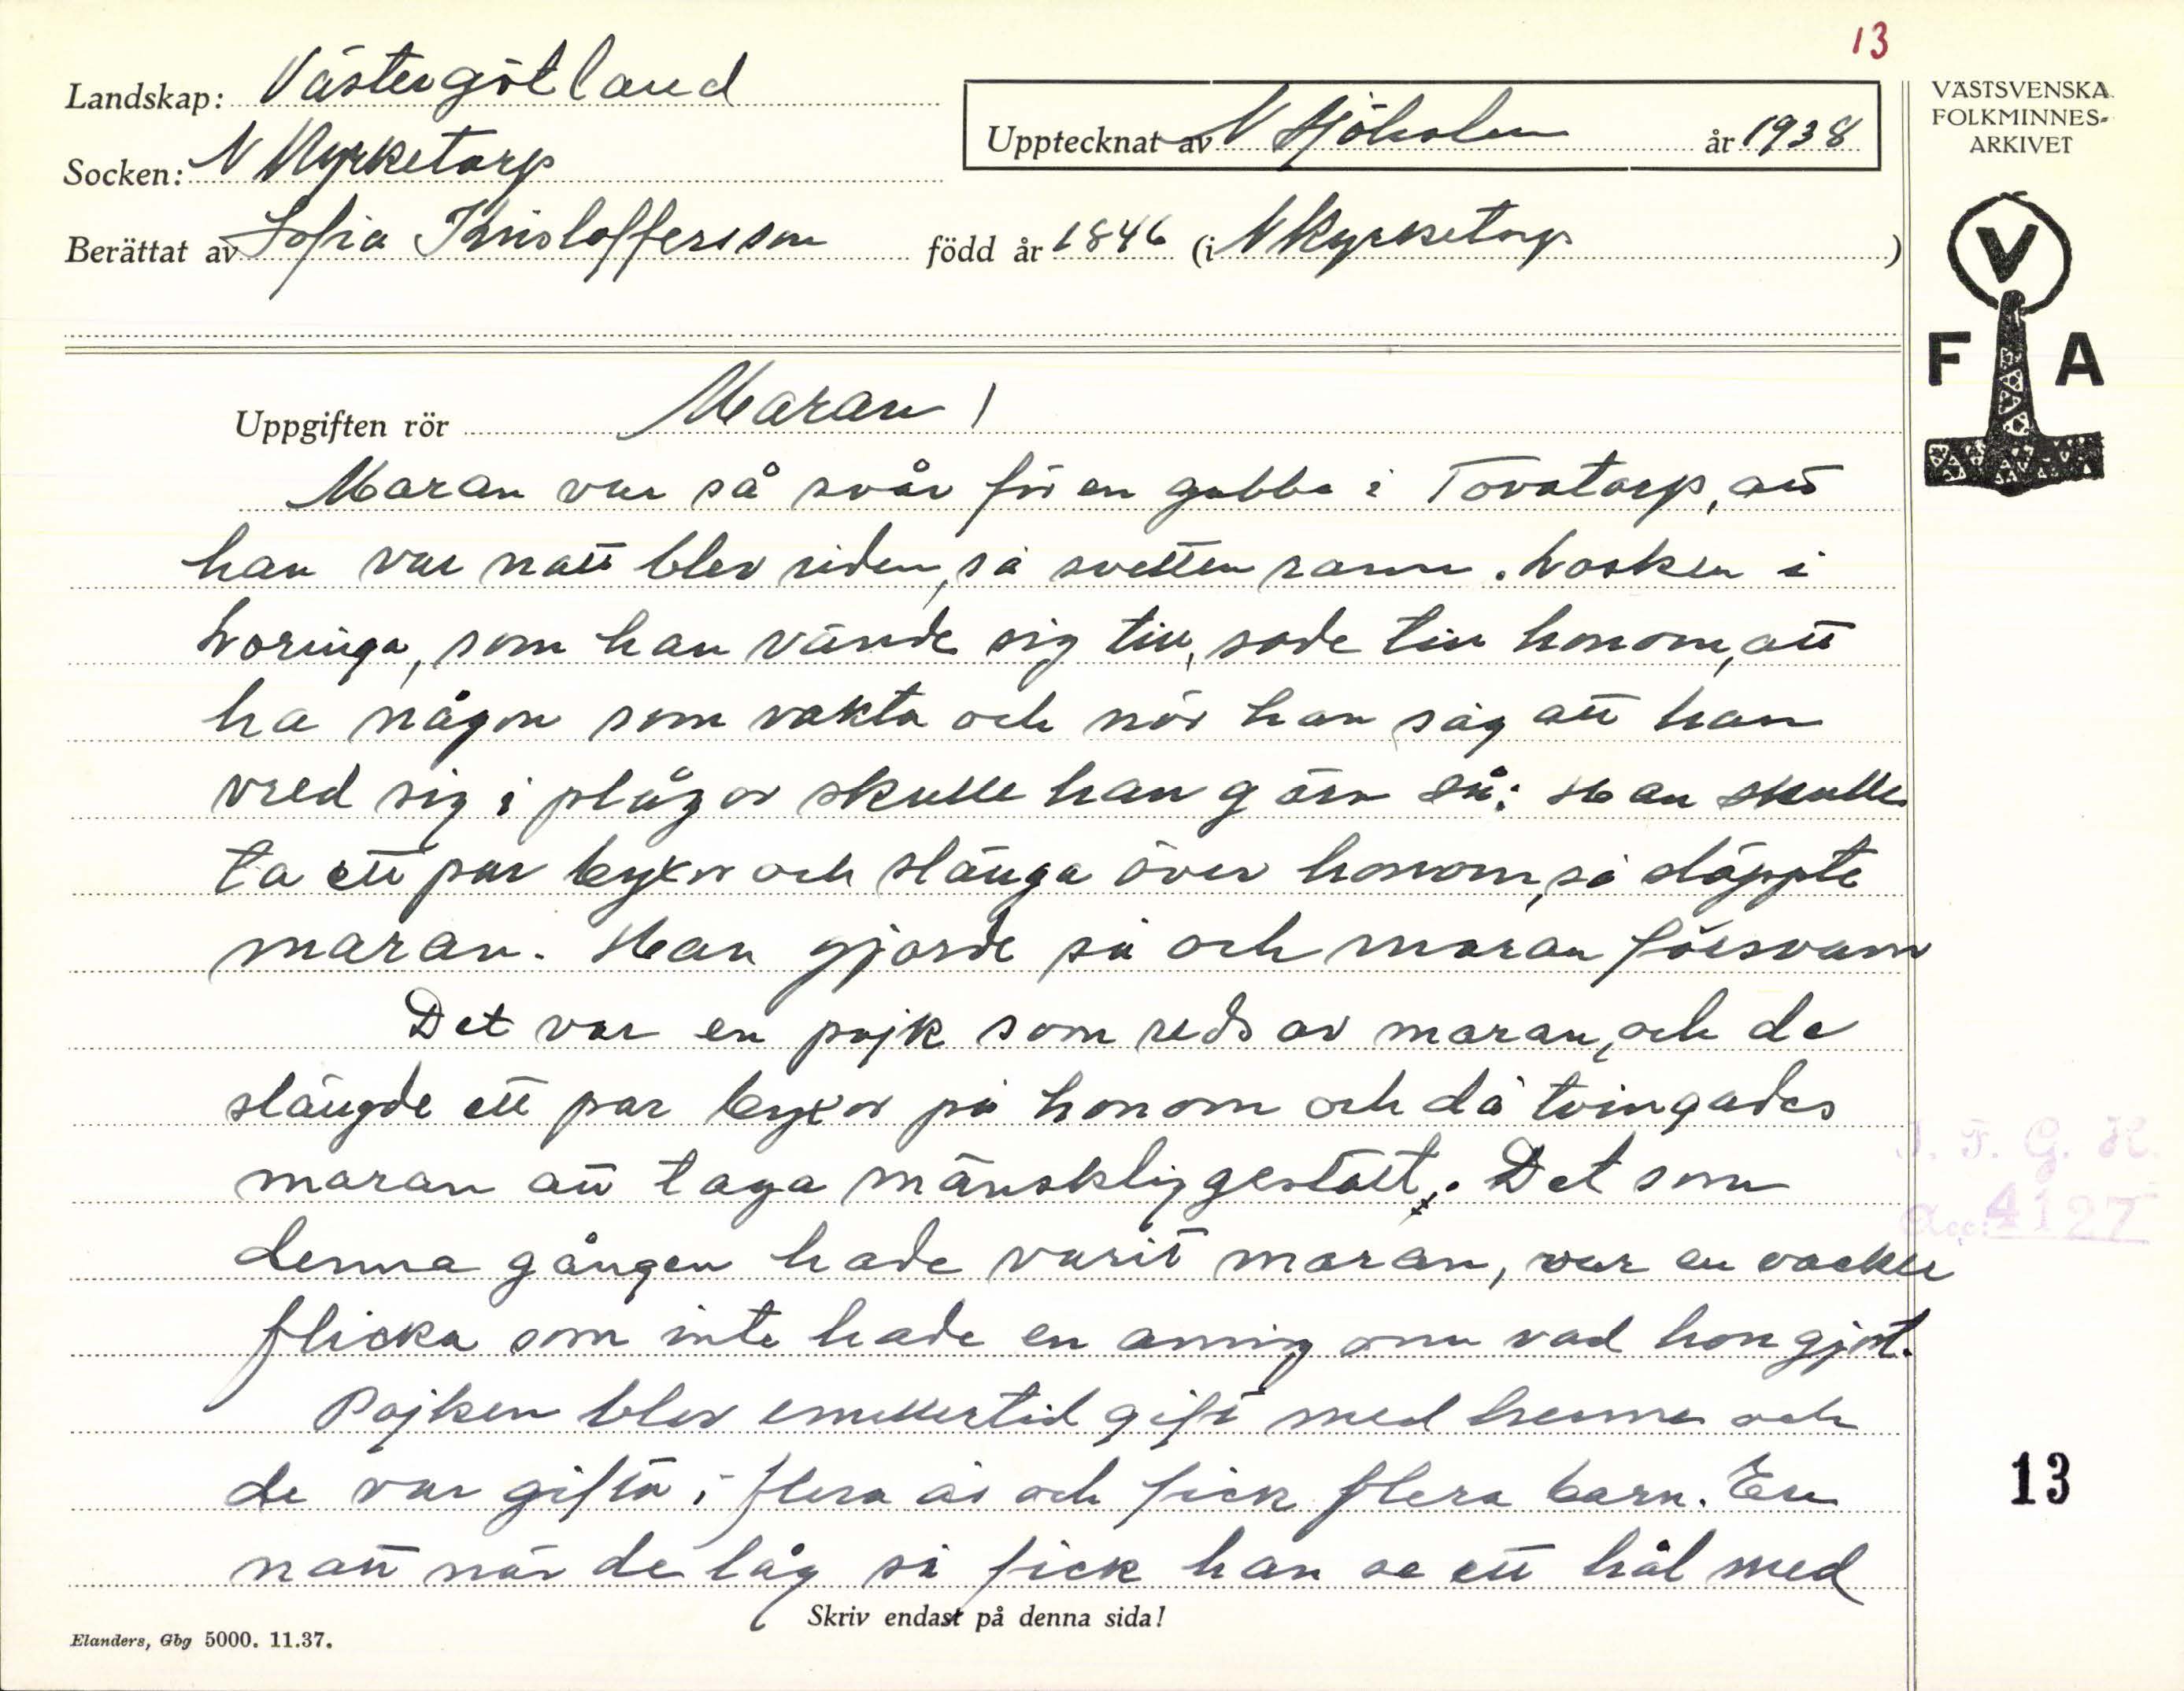 13
Landskap: Västergötland
Upptecknat av N Sjöholm år 1938
VÄSTSVENSKA
FOLKMINNES-
ARKIVET
Socken: N Kyrketorp
Berättat av Sofia Kristoffersson född år 1846 (i N Kyrketorp )
V
F A
Uppgiften rör Maran 1
Maran var så svår för en gubbe i Tovatorp, att
han var natt blev riden, så svetten rann. Lasken i
Loringa, som han vände sig till, sade till honom, att
ha någon som vakta och när han såg att han
vred sig i plågor skulle han göra så: Han skulle
ta ett par byxor och slänga över honom, så släppte
maran. Han gjorde så och maran försvann
Det var en pojk som reds av maran, och de
slängde ett par byxor på honom och då tvingades
maran att taga mänsklig gestalt. Det som
denna gången hade varit maran, var en vacker
flicka som inte hade en aning om vad hon gjort.
Pojken blev emellertid gift med henne och
de var gifta i flera år och fick flera barn. En
natt när de låg så fick han se ett hål med
Skriv endast på denna sida!
Elanders, Gbg 5000. 11.37.
I. F. G. H.
Acc: 4127
13